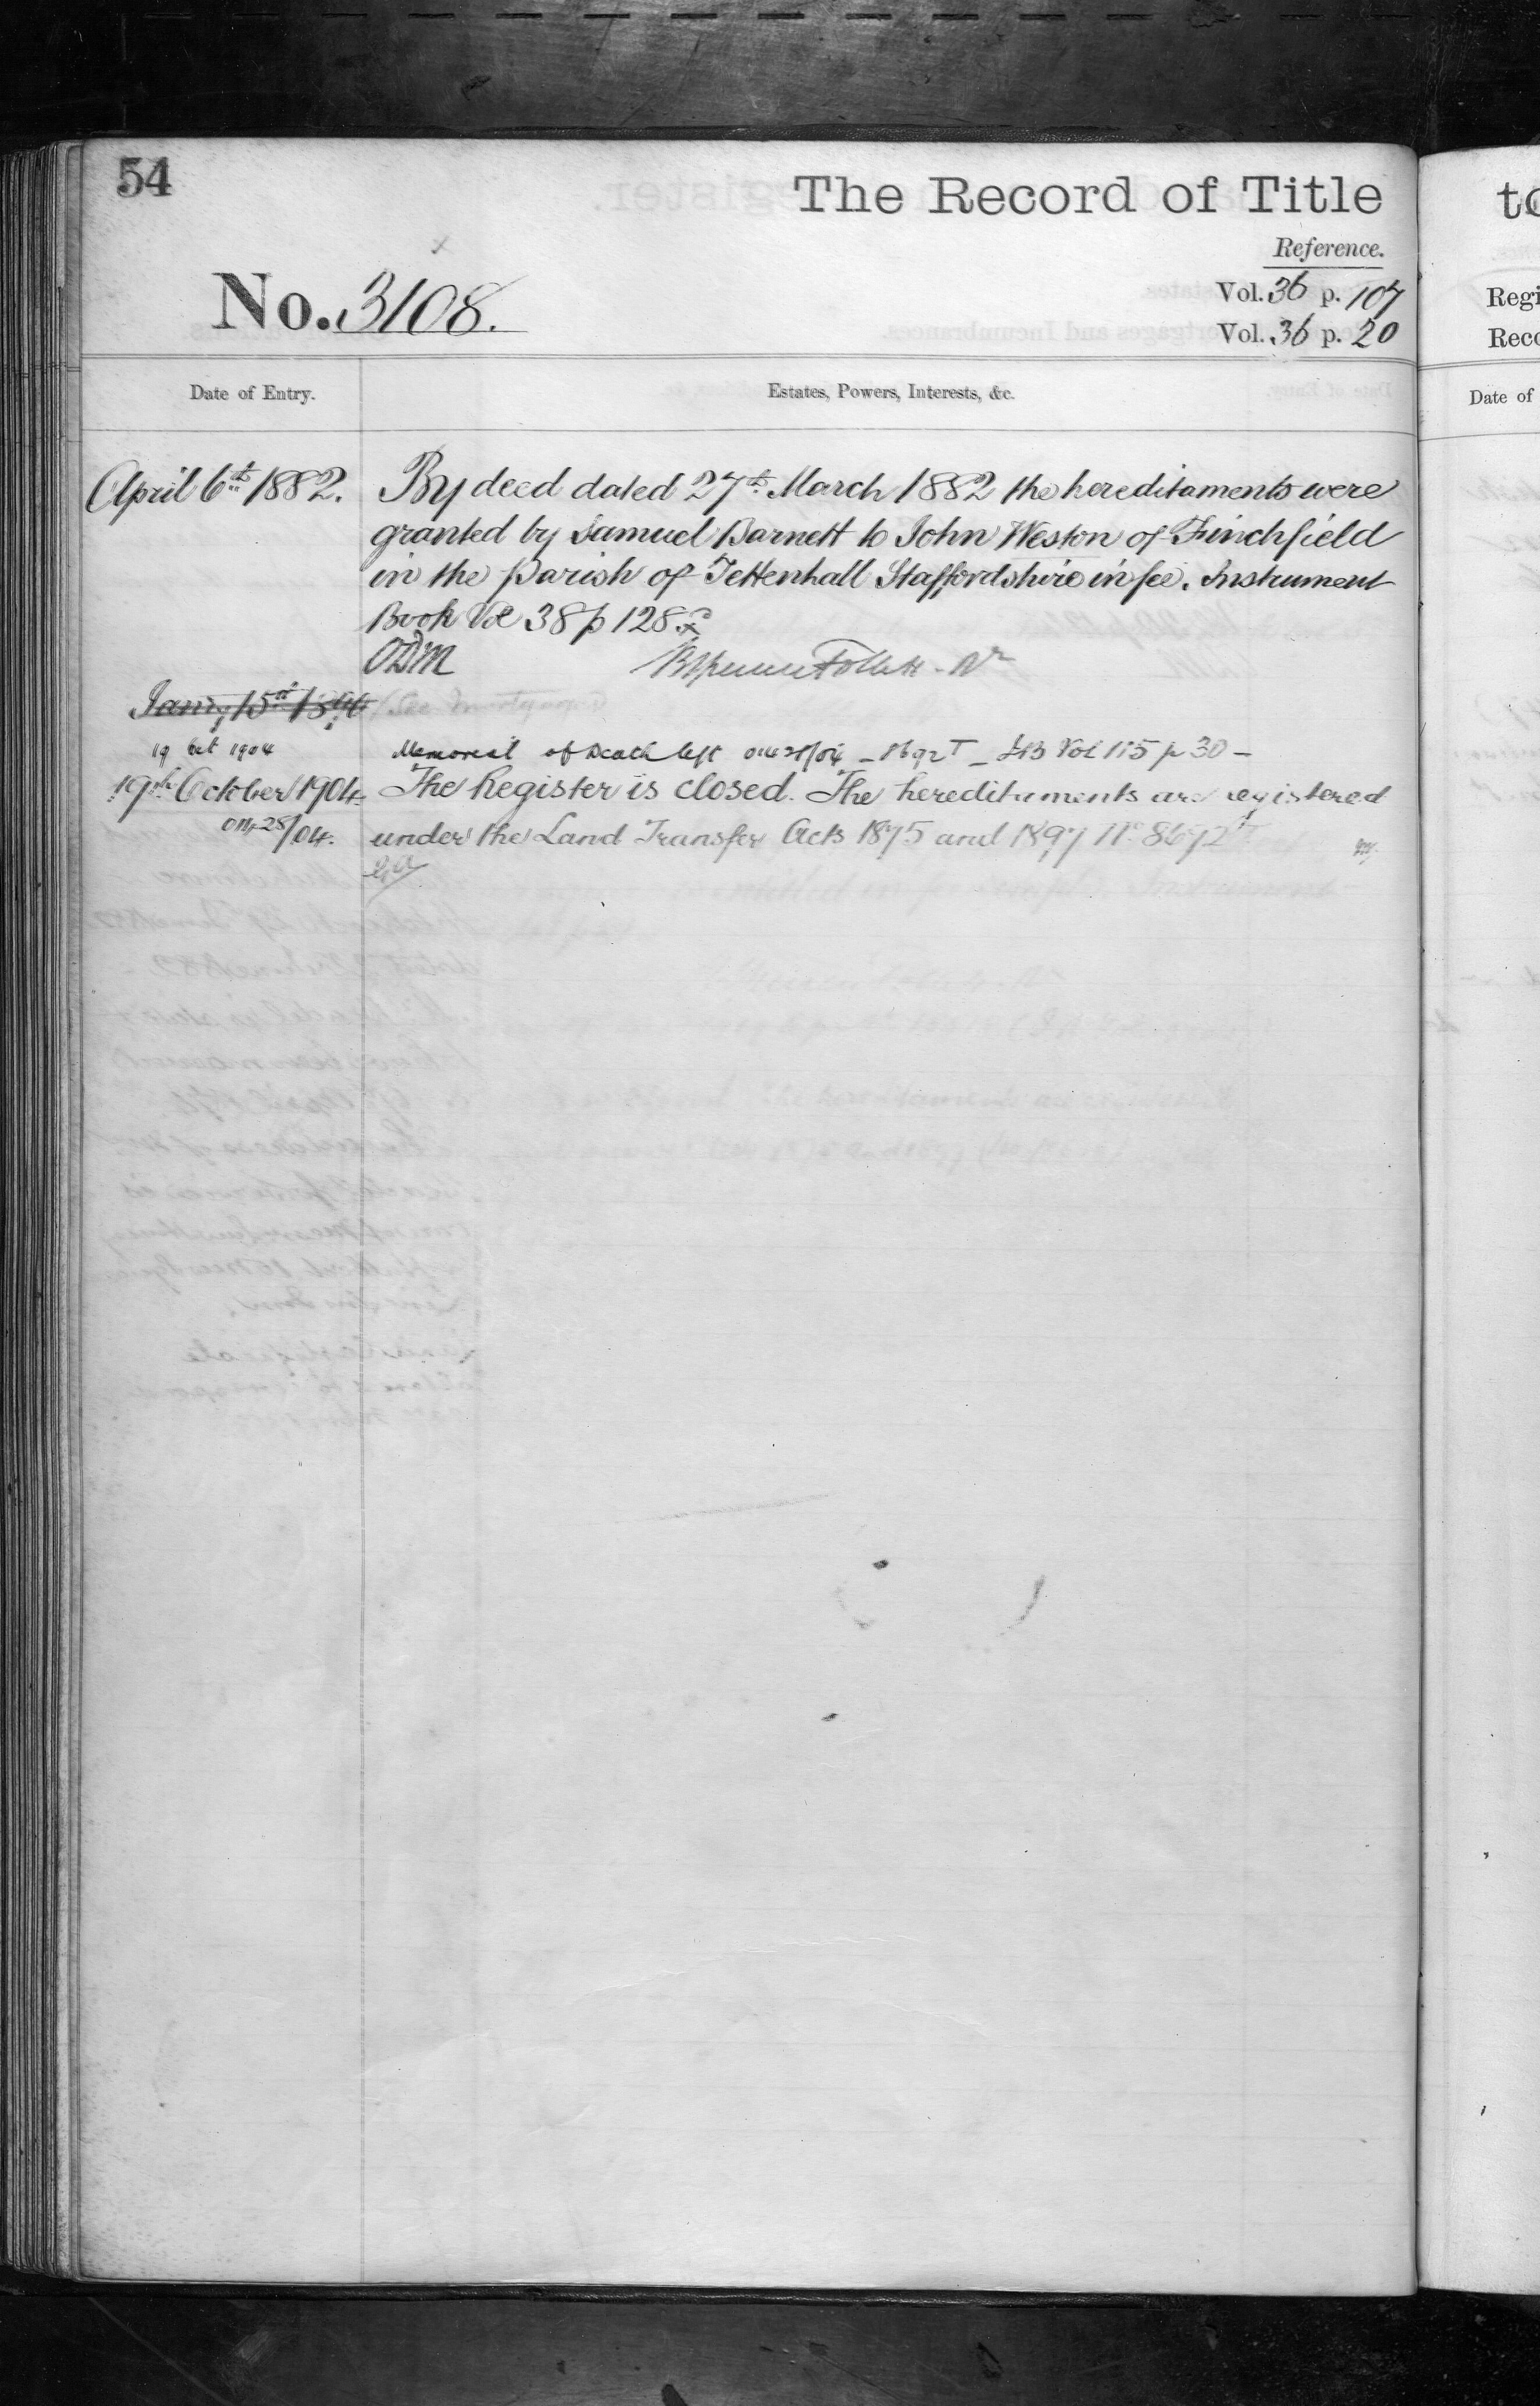 54
The Record of Title
Reference.
No. 3108.
Vol. 36 p. 107
Vol. 36 p. 20
Date of Entry.
Estates, Powers, Interests, &c.
April 6th 1882.
By deed dated 27th March 1882 the hereditaments were
granted by Samuel Barnett to John Weston of Finchfield
in the parish of Tettenhall Staffordshire in fee. Instrument
Book Vol 38 p 128
ODM
Follett
Jany 15th
(See mortgages)
19 Oct 1904
Memorial of Death left 28/04 - 8692T - Vol 115 p 30 -
19th October 1904.
The Register is closed. The hereditaments are registered
28/04.
under the Land Transfer Acts 1875 and 1897 No 8692T
Regi
Reco
Date of